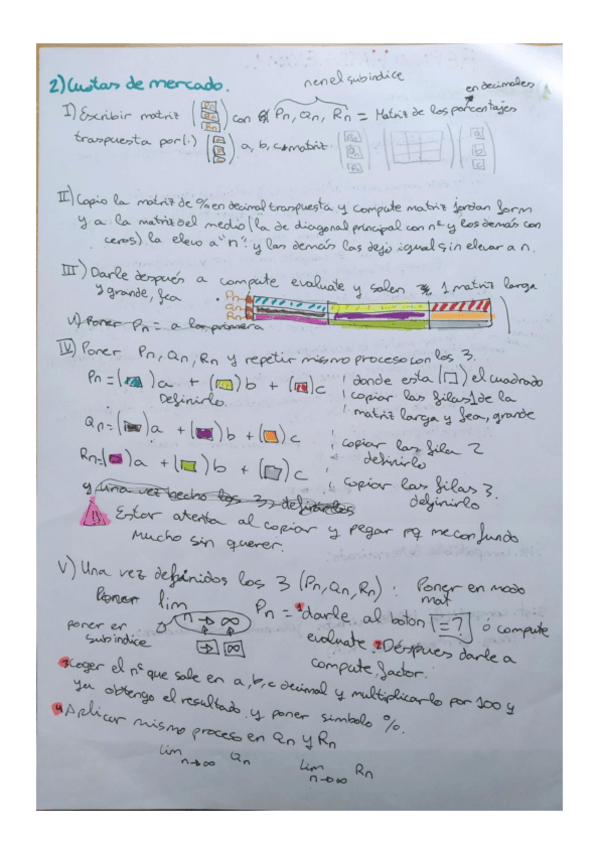 2) Cuotas de mercado.
n en el subindice
en decimales
I) Escribir matriz (Pn Qn Rn) con Pn, Qn, Rn = Matriz de los porcentajes
traspuesta por (·) a, b, c matriz (Pn Qn Rn) (a b c)
II) Copio la matriz de % en decimal traspuesta y compute matriz jordan form
y a la matriz del medio (la de diagonal principal con nº y los demás con
ceros) la elevo a "n" y las demás las dejo igual sin elevar a n.
III) Darle después a compute evaluate y salen 1 matriz larga
y grande, fea
Pn
Qn
Rn
V) Poner Pn = a la primera
IV) Poner Pn, Qn, Rn y repetir mismo proceso con los 3.
Pn = ( ) a + ( ) b + ( ) c donde esta (□) el cuadrado
Definirlo. copiar las filas 1 de la
matriz larga y fea, grande
Qn = ( ) a + ( ) b + ( ) c copiar las fila 2
definirlo
Rn = ( ) a + ( ) b + ( ) c copiar las filas 3.
definirlo
y una vez hecho los 3, definirlos
!! Estar atenta al copiar y pegar pq me confundo
mucho sin querer.
V) Una vez definidos los 3 (Pn, Qn, Rn): Poner en modo
mat
Poner lim n→∞ Pn = 1 darle al boton [=?] ó compute
poner en subindice → ∞
evaluate. 2 Déspues darle a
compute, factor.
3 Coger el nº que sale en a, b, c decimal y multiplicarlo por 100 y
ya obtengo el resultado y poner simbolo %.
4 Aplicar mismo proceso en Qn y Rn
lim n→∞ Qn lim n→∞ Rn